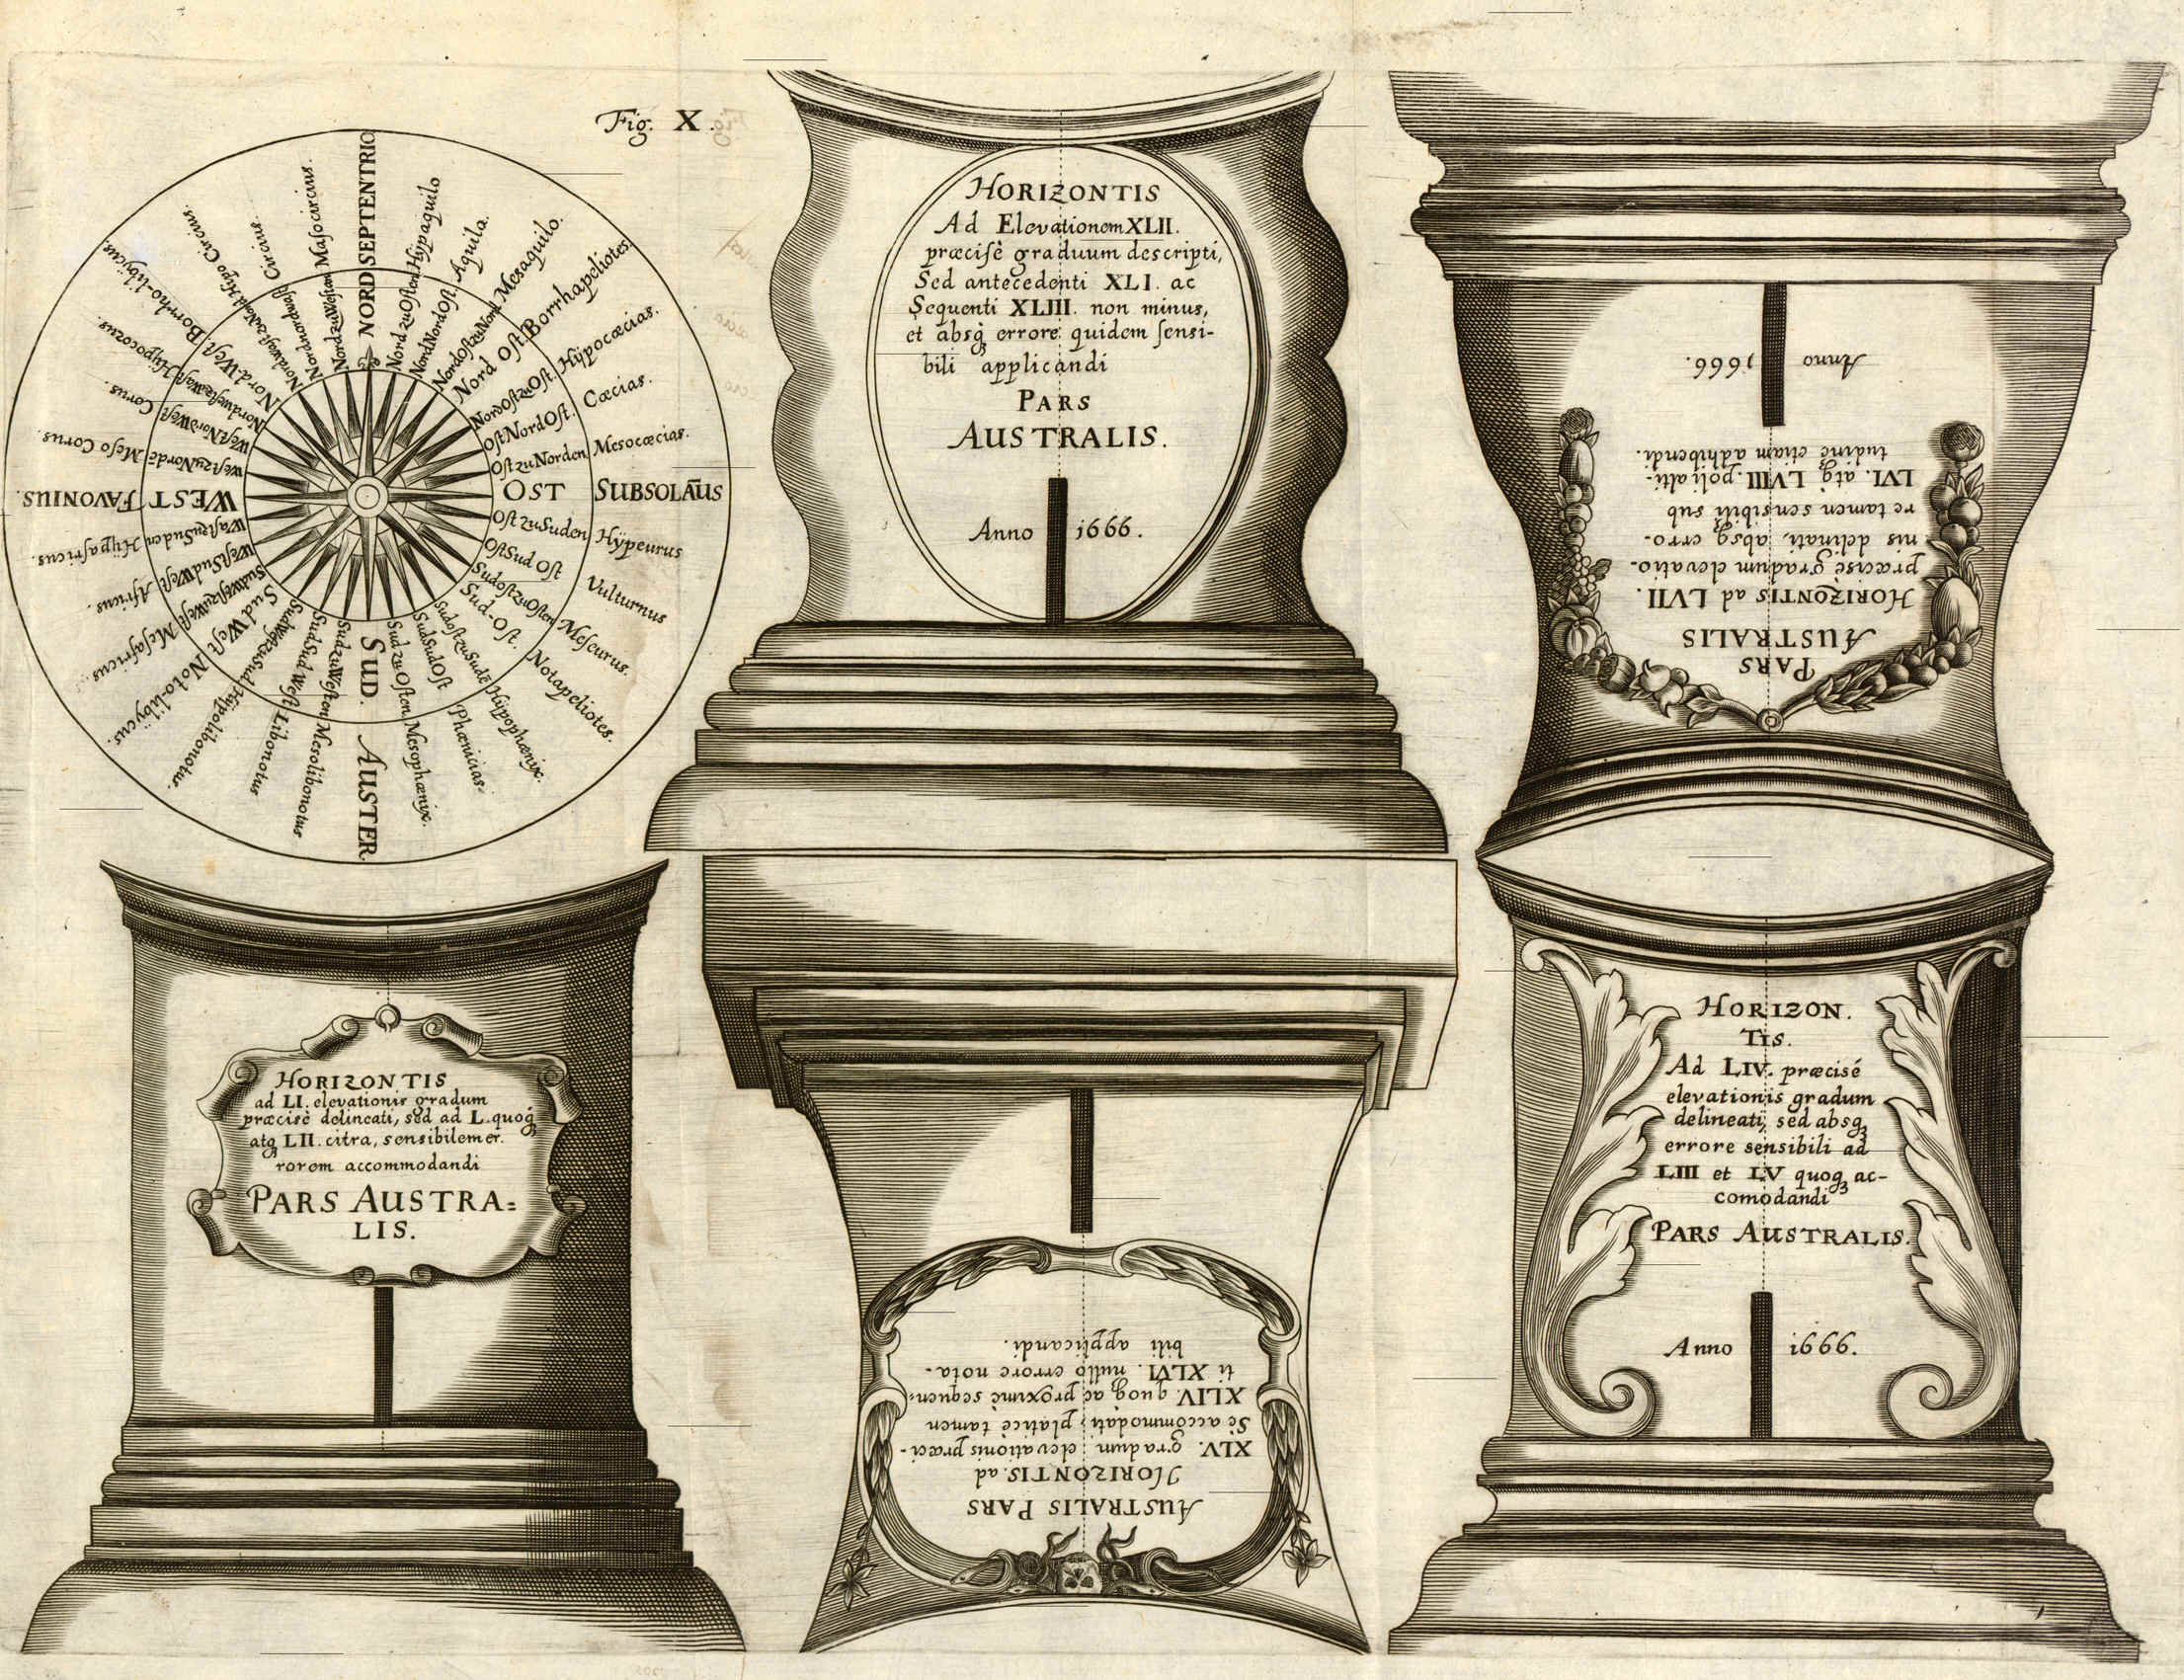 Fig. X.
NORD SEPTENTRIO
Nord zu Osten Hÿpaquilo
NordNordOst. Aquila.
Nordost zu Nord Mesaquilo.
Nord Ost Borrhapeliotes.
Nordost zu Ost. Hÿpocæcias.
OstNordOst. Cæcias.
Ost zu Norden Mesocæcias.
OST SUBSOLAÑUS
Ost zu Suden Hÿpeurus
OstSud Ost Vulturnus
Sudost zu Osten Meseurus.
Sud-Ost. Notapeliotes.
Sudost zu Sudē Hÿpophœnix.
SudSudOst Phœnicias.
Sud zu Osten. Mesophœnix.
SUD. AUSTER.
Sud zu Westen Mesolibonotus
SudSudWest Libonotus
Sudwest zu Sud Hÿpolibonotus
Sud West Noto-libÿcus.
Sudwest zu West Mesafricus.
WestSudWest Africus.
West zu Suden Hÿpafricus.
WEST FAVONIUS.
West zu Nordē Meso Corus.
WestNordWest Corus.
Nordwest zu West Hÿpocorus.
Nord West Borrho-libÿcus.
Nordwest zu Nord Hÿpo Circius.
Nordnordwest Circius.
Nord zu Westen Mesocircius.
HORIZONTIS
Ad Elevationem XLII.
præcisè graduum descripti,
Sed antecedenti XLI. ac
Sequenti XLIII. non minus,
et absq3 errore quidem sensi-
bili applicandi
PARS
AUSTRALIS.
Anno 1666.
PARS
AUSTRALIS
HORIZONTIS ad LVII.
præcisè gradum elevatio-
nis delinati, absq3 erro-
re tamen sensibili sub
LVI. atq3 LVIII. poli alti-
tudine etiam adhibendi.
Anno 1666.
HORIZONTIS
ad LI. elevationis gradum
præcisè delineati, sed ad L. quoq3
atq3 LII. citra, sensibilem er.
rorem accommodandi
PARS AUSTRA=
LIS.
AUSTRALIS PARS
HORIZONTIS. ad
XLV. gradum elevationis præci-
Sè accommodati; platicè tamen
XLIV. quoq3 ac proximè sequen=
ti XLVI. nullo errore nota-
bili applicandi.
HORIZON.
TIS.
Ad LIV. præcisé
elevationis gradum
delineati, sed absq3
errore sensibili ad
LIII et LV quoq3 ac-
comodandi
PARS AUSTRALIS.
Anno 1666.